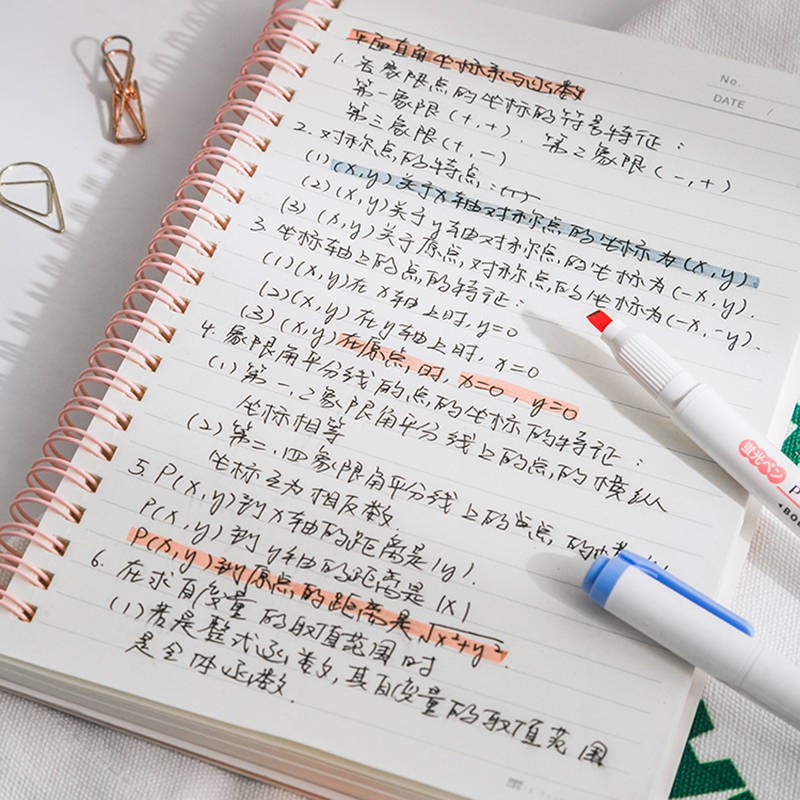 平面直角坐标系与函数
No.
DATE /
1. 各象限点的坐标的符号特征：
第一象限(+,+). 第二象限(-,+)
第三象限(+,-)
2. 对称点的特点：
(1) (x,y)关于x轴对称点的坐标为(x,y).
(2) (x,y)关于y轴对称点的坐标为(-x,y).
(3) (x,y)关于原点对称点的坐标为(-x,-y).
3. 坐标轴上的点的特征：
(1) (x,y)在x轴上时, y=0
(2) (x,y)在y轴上时, x=0
(3) (x,y)在原点时, x=0, y=0
4. 象限角平分线的点的坐标的特征：
(1) 第一、三象限角平分线上的点的横纵
坐标相等
(2) 第二、四象限角平分线上的点
坐标互为相反数.
5. P(x,y)到x轴的距离是|y|.
P(x,y)到y轴的距离是|x|
P(x,y)到原点的距离是√x²+y².
6. 在求自变量的取值范围时
(1) 若是整式函数, 其自变量的取值范围
是全体函数.
蛍光ペン